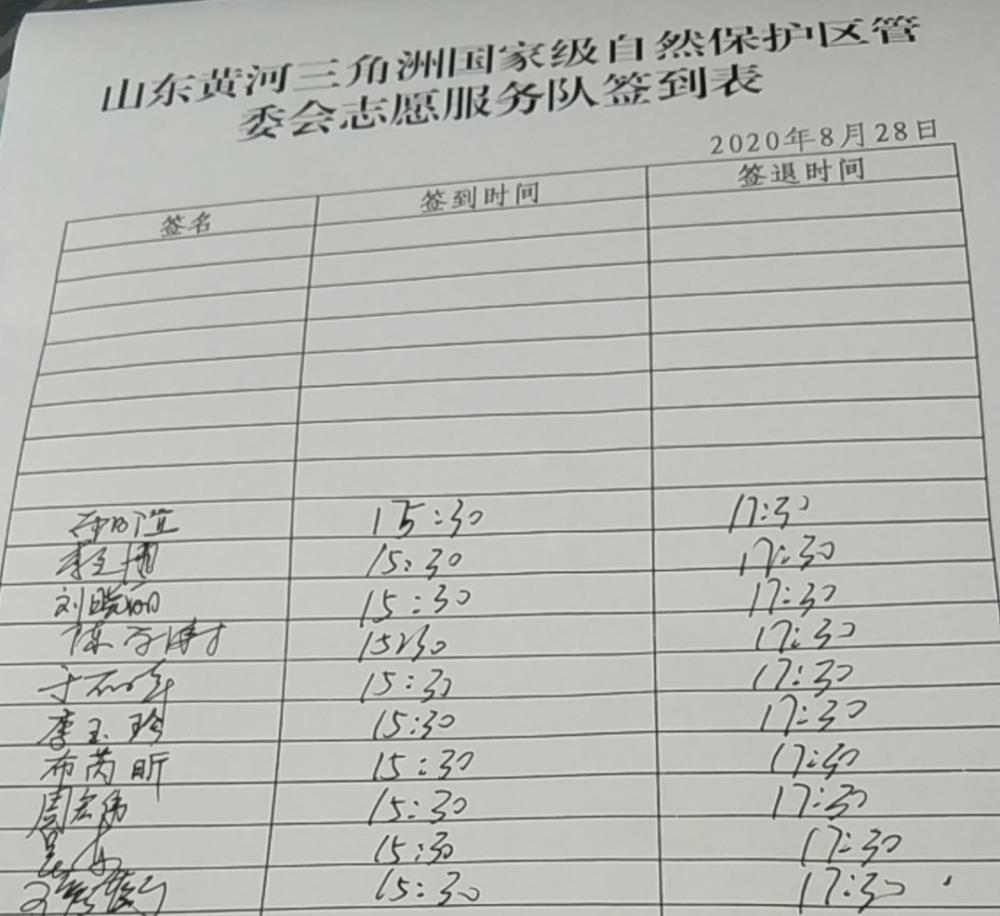 山东黄河三角洲国家级自然保护区管
委会志愿服务队签到表
2020年8月28日
签名 签到时间 签退时间
15:30 17:30
15:30 17:30
刘晓丽 15:30 17:30
陈 15:30 17:30
于 15:30 17:30
李玉珍 15:30 17:30
布芮昕 15:30 17:30
周宏伟 15:30 17:30
15:30 17:30
15:30 17:30